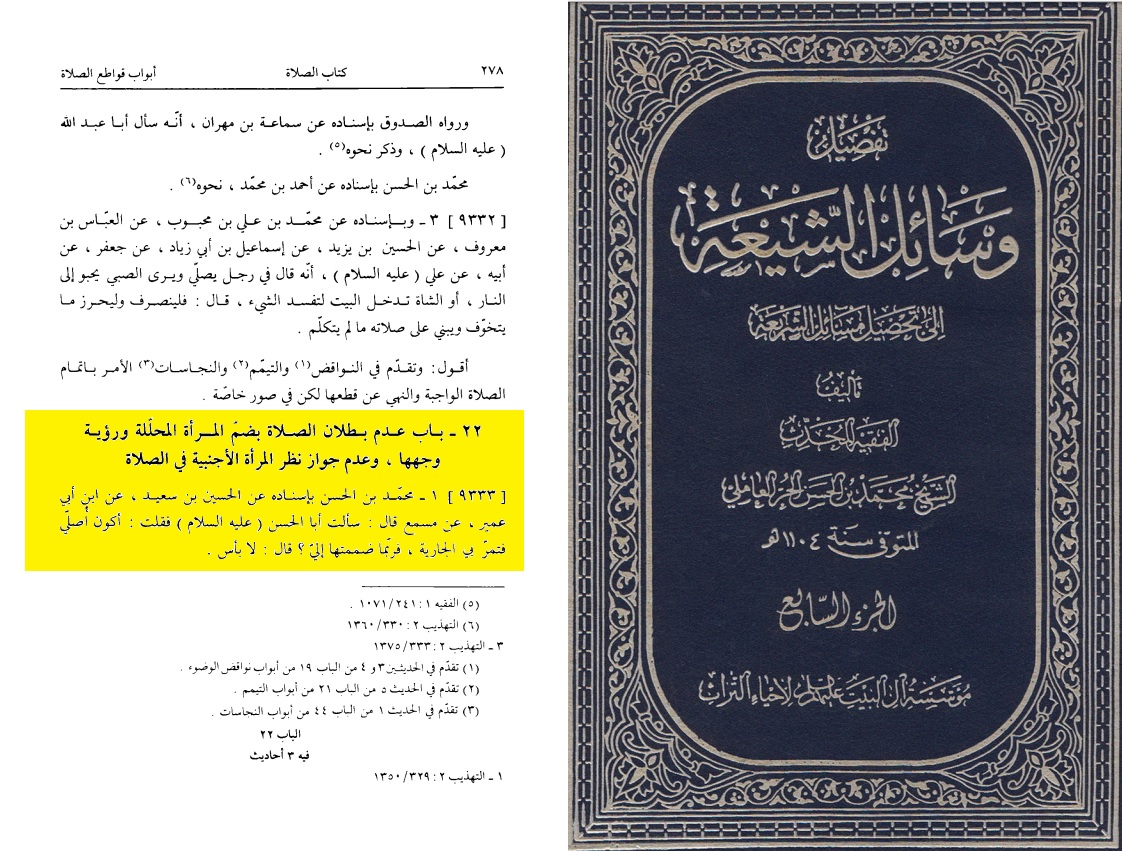 ٢٧٨ كتاب الصلاة أبواب قواطع الصلاة
ورواه الصدوق بإسناده عن سماعة بن مهران ، أنّه سأل أبا عبد الله
( عليه السلام ) ، وذكر نحوه(٥) .
محمّد بن الحسن بإسناده عن أحمد بن محمّد ، نحوه(٦) .
[ ٩٣٣٢ ] ٣ ـ وبإسناده عن محمّد بن علي بن محبوب ، عن العبّاس بن
معروف ، عن الحسين بن يزيد ، عن إسماعيل بن أبي زياد ، عن جعفر ، عن
أبيه ، عن علي ( عليه السلام ) ، أنّه قال في رجل يصلّي ويرى الصبي يحبو إلى
النار ، أو الشاة تدخل البيت لتفسد الشيء ، قال : فلينصرف وليحرز ما
يتخوّف ويبني على صلاته ما لم يتكلّم .
أقول : وتقدّم في النواقض(١) والتيمّم(٢) والنجاسات(٣) الأمر باتمام
الصلاة الواجبة والنهي عن قطعها لكن في صور خاصّة .
٢٢ ـ باب عدم بطلان الصلاة بضمّ المرأة المحلّلة ورؤية
وجهها ، وعدم جواز نظر المرأة الأجنبية في الصلاة
[ ٩٣٣٣ ] ١ ـ محمّد بن الحسن بإسناده عن الحسين بن سعيد ، عن ابن أبي
عمير ، عن مسمع قال : سألت أبا الحسن ( عليه السلام ) فقلت : أكون أُصلّي
فتمرّ بي الجارية ، فربّما ضممتها إليّ ؟ قال : لا بأس .
(٥) الفقيه ١ : ٢٤١/ ١٠٧١ .
(٦) التهذيب ٢ : ٣٣٠/ ١٣٦٠
٣ ـ التهذيب ٢ : ٣٣٣/ ١٣٧٥
(١) تقدّم في الحديثين ٣ و ٤ من الباب ١٩ من أبواب نواقض الوضوء .
(٢) تقدّم في الحديث ٥ من الباب ٢١ من أبواب التيمم .
(٣) تقدّم في الحديث ١ من الباب ٤٤ من أبواب النجاسات .
الباب ٢٢
فيه ٣ أحاديث
١ ـ التهذيب ٢ : ٣٢٩/ ١٣٥٠
تفصيل
وسائل الشيعة
إلى تحصيل مسائل الشريعة
تأليف
الفقيه المحدث
الشيخ محمد بن الحسن الحر العاملي
المتوفى سنة ١١٠٤ هـ
الجزء السابع
مؤسسة آل البيت عليهم السلام لإحياء التراث